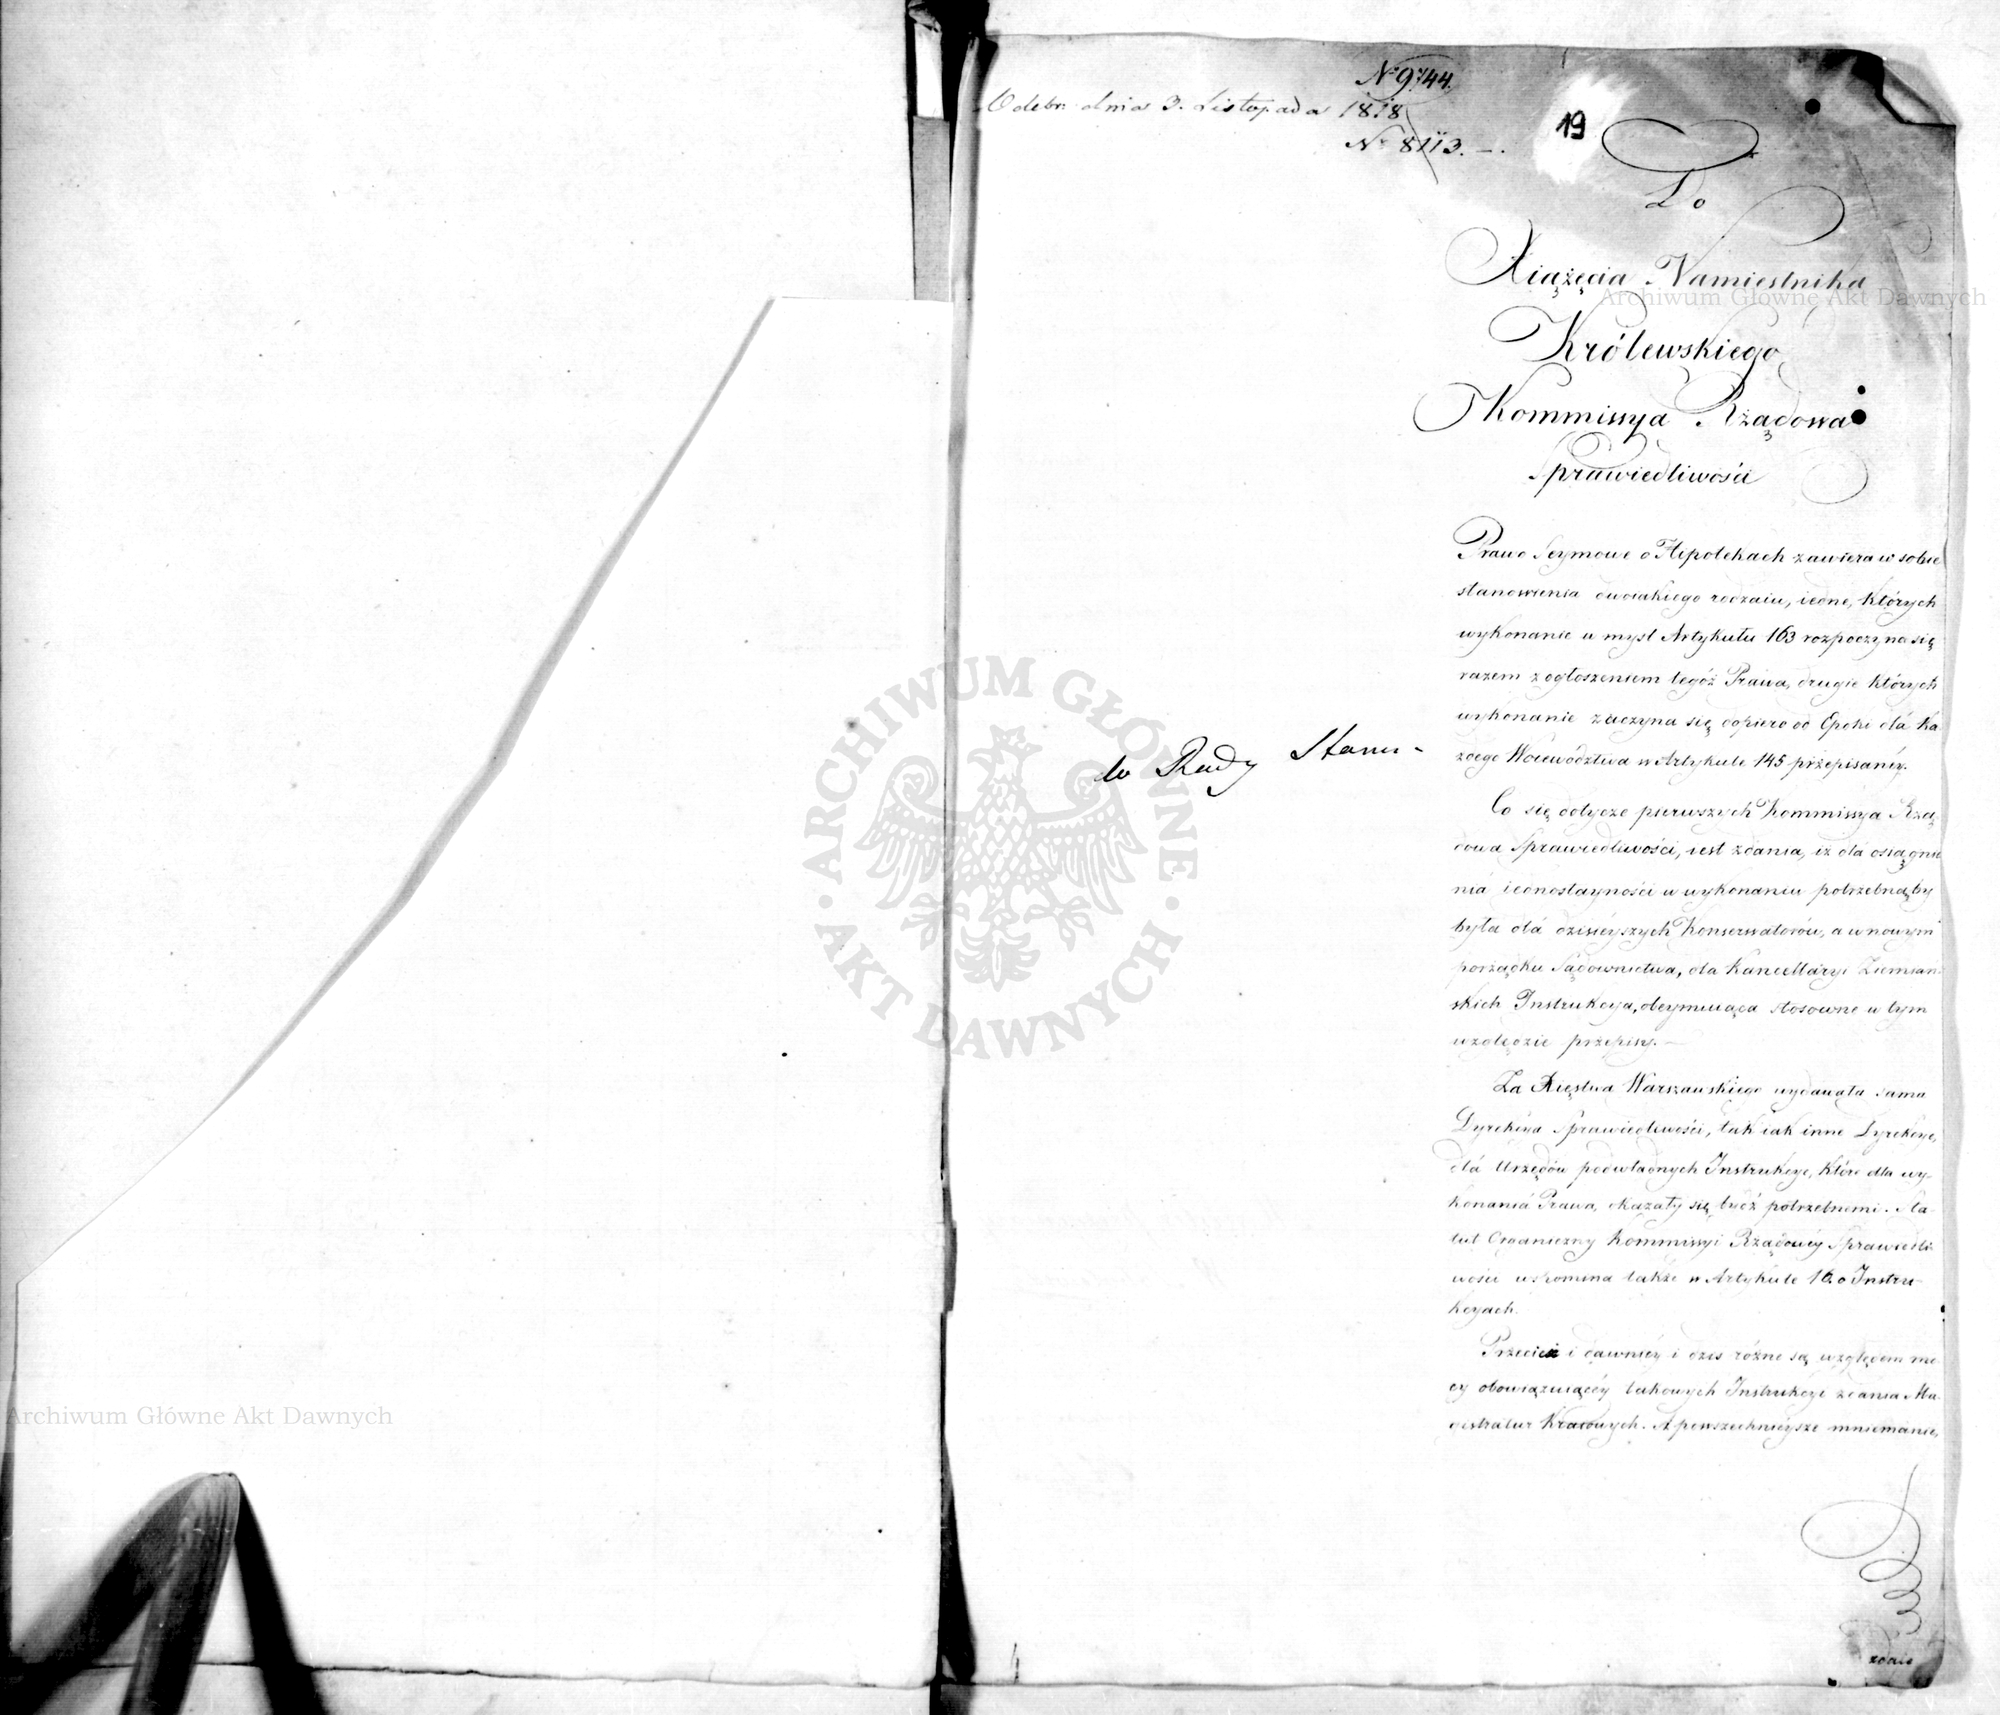 N° 9744.
Odebr. dnia 3. Listopada 1818
N° 8113. —.
19
Do
Xiążęcia Namiestnika
Królewskiego
Kommissya Rządowa
Sprawiedliwości
Prawo Seymowe o Hipotekach zawiera w sobie
stanowienia dwoiakiego rodzaiu, iedne, których
wykonanie w myśl Artykułu 163 rozpoczyna się
razem z ogłoszeniem tegóż Prawa, drugie których
wykonanie zaczyna się dopiero od Epoki dlá Ka-
żdego Woiewództwa w Artykule 145 przepisanéy.
do Rady Stanu -
Co się dotycze pierwszych Kommissya Rzą-
dowa Sprawiedliwości, iest zdania, iż dlá osiągnie
niá iednostayności w wykonaniu potrzebną by
była dlá dzisiéyszych Konserwatorów, a w nowym
porządku Sądownictwa, dla Kancellaryi Ziemiań-
skich Instrukcya, obeymuiąca stosowne w tym
względzie przepisy. —
Za Xięstwa Warszawskiego wydawała sama
Dyrekcya Sprawiedliwości, tak iak inne Dyrekcye,
dlá Urzędów podwładnych Instrukcye, które dla wy-
konaniá Prawa, okazały się bydź potrzebnemi. Sta-
tut Organiczny Kommissyi Rządowey Sprawiedli
wości wspomina także w Artykule 16. o Instru-
kcyach.
Przecież i dawniéy i dziś różne są względem mo-
cy obowiązuiącéy takowych Instrukcyi zdania Ma-
gistratur Kraiowych. A powszechnieysze mniemanie,
zdaie
Archiwum Główne Akt Dawnych
Archiwum Główne Akt Dawnych
· ARCHIWUM GŁÓWNE ·
AKT DAWNYCH